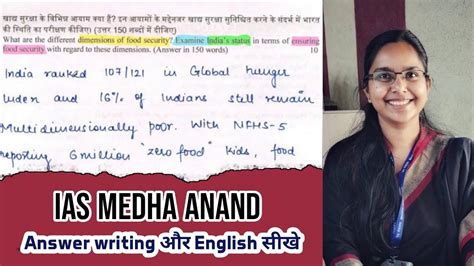 खाद्य सुरक्षा के विभिन्न आयाम क्या हैं? इन आयामों के मद्देनजर खाद्य सुरक्षा सुनिश्चित करने के संदर्भ में भारत
की स्थिति का परीक्षण कीजिए। (उत्तर 150 शब्दों में दीजिए)
What are the different dimensions of food security? Examine India's status in terms of ensuring
food security with regard to these dimensions. (Answer in 150 words) 10
India ranked 107/121 in Global hunger
index and 16% of Indians still remain
Multidimensionally poor. With NFHS-5
reporting 6 million "zero food" kids, food
IAS MEDHA ANAND
Answer writing और English सीखे